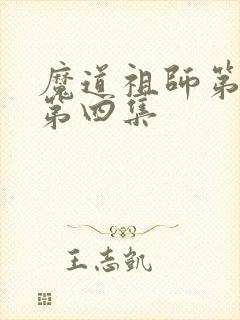 魔道祖師第
第四集
王志凱